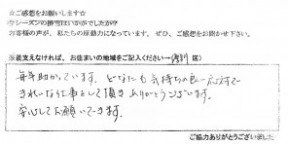 ☆ご感想をお願いします☆
お客様の声が、私たちの原動力になっています。ぜひ、ご感想をお聞かせ下さい。
※差支えなければ、お住まいの地域をご記入ください→
毎年助かっています。どなたも気持ちの良い応対で
きれいな仕事をして頂きありがとうございます。
安心してお願いできます。
ご協力ありがとうございました